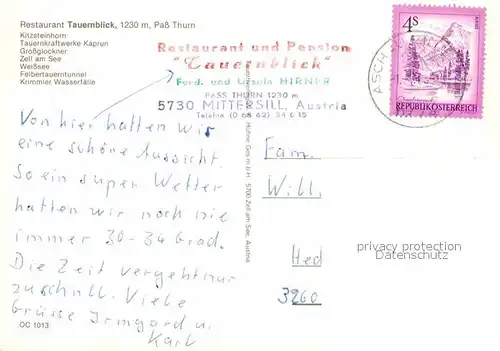 Restaurant Tauernblick, 1230 m, Paß Thurn
Kitzsteinhorn
Tauernkraftwerke Kaprun
Großglockner
Zell am See
Weißsee
Felbertauerntunnel
Krimmler Wasserfälle
Restaurant und Pension
"Tauernblick"
Ferd. und Ursula HIRNER
PASS THURN 1230 m
5730 MITTERSILL, Austria
Telefon (0 65 62) 34 6 15
4S
REPUBLIK ÖSTERREICH
Von hier hatten wir
eine schöne Aussicht.
So ein super Wetter
hatten wir noch nie
immer 30-34 Grad.
Die Zeit vergeht nur
zu schnell. Viele
Grüsse Irmgard u.
Karl
OC 1013
Ges.m.b.H. 5700 Zell am See, Austria
Fam.
Will.
Hed
3260
privacy protection
Datenschutz